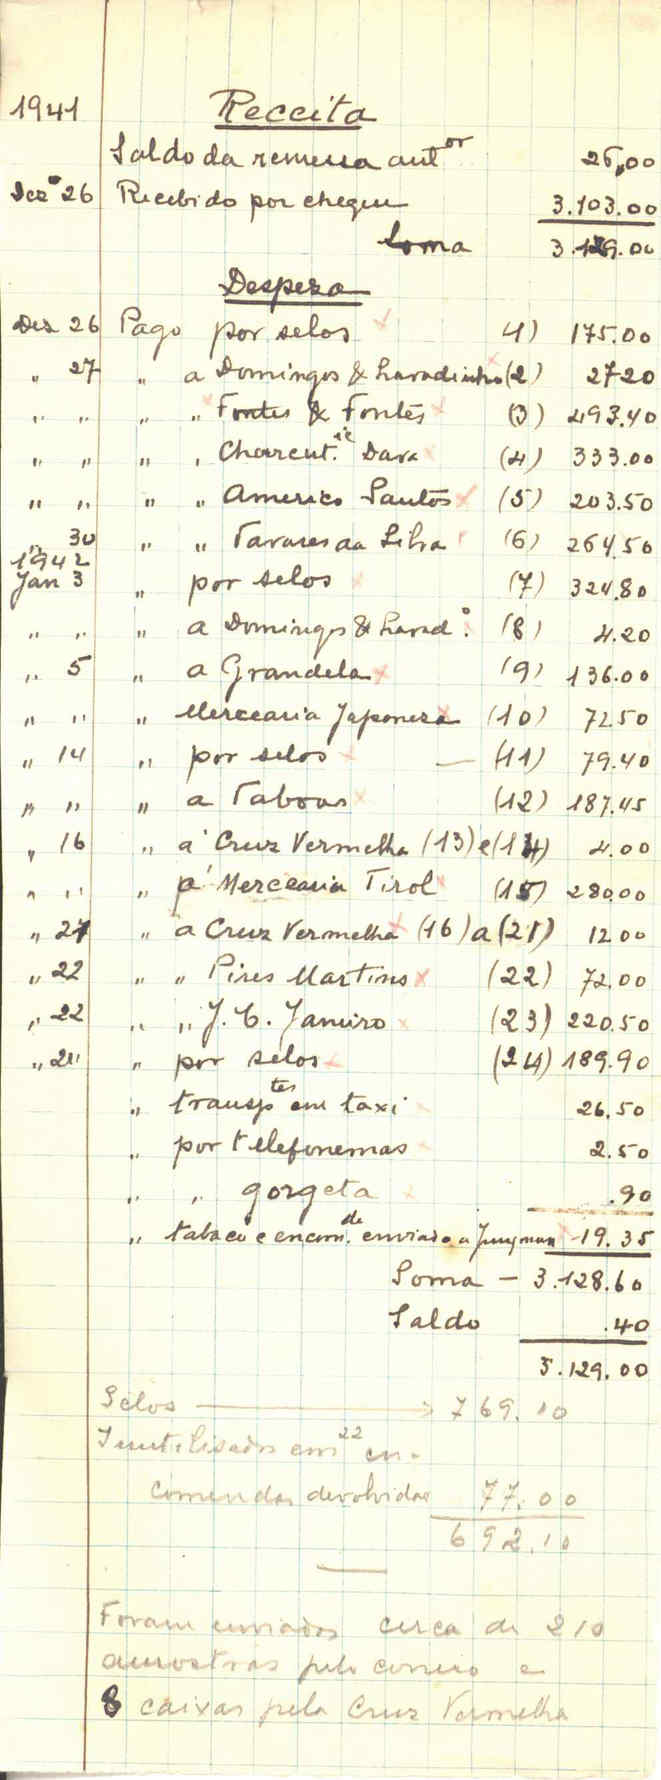 1941 Receita
Saldo da remessa ant.or 26,00
Dez.o 26 Recebido por cheque 3.103.00
Soma 3.129.00
Despeza
Dez 26 Pago por selos 1) 175.00
" 27 " a Domingos & Lavadinho (2) 27.20
" " " " Fontes & Fontes (3) 493.40
" " " " Charcut.ie Dava (4) 333.00
" " " " Americo Santos (5) 203.50
" 30 " " Tavares da Silva (6) 264.50
1942
Jan 3 " por selos (7) 324.80
" " " a Domingos & Lavad.o (8) 4.20
" 5 " a Grandela (9) 136.00
" " " Mercearia Japoneza (10) 72.50
" 14 " por selos — (11) 79.40
" " " a Taboas (12) 187.45
" 16 " a' Cruz Vermelha (13) e (14) 4.00
" " " a' Mercearia Tirol (15) 280.00
" 21 " a Cruz Vermelha (16) a (21) 12.00
" 22 " " Pires Martins (22) 72.00
" 22 " " J. C. Janeiro (23) 220.50
" " por selos (24) 189.90
" transp.tes em taxi 26.50
" por telefonemas 2.50
" " gorgeta .90
" tabaco e encom.de enviada a 19.35
Soma — 3.128.60
Saldo .40
3.129.00
Selos 769.10
Inutilisados em 22 en-
comendas devolvidas 77.00
692.10
Foram enviados cerca de 210
amostras pelo correio e
8 caixas pela Cruz Vermelha